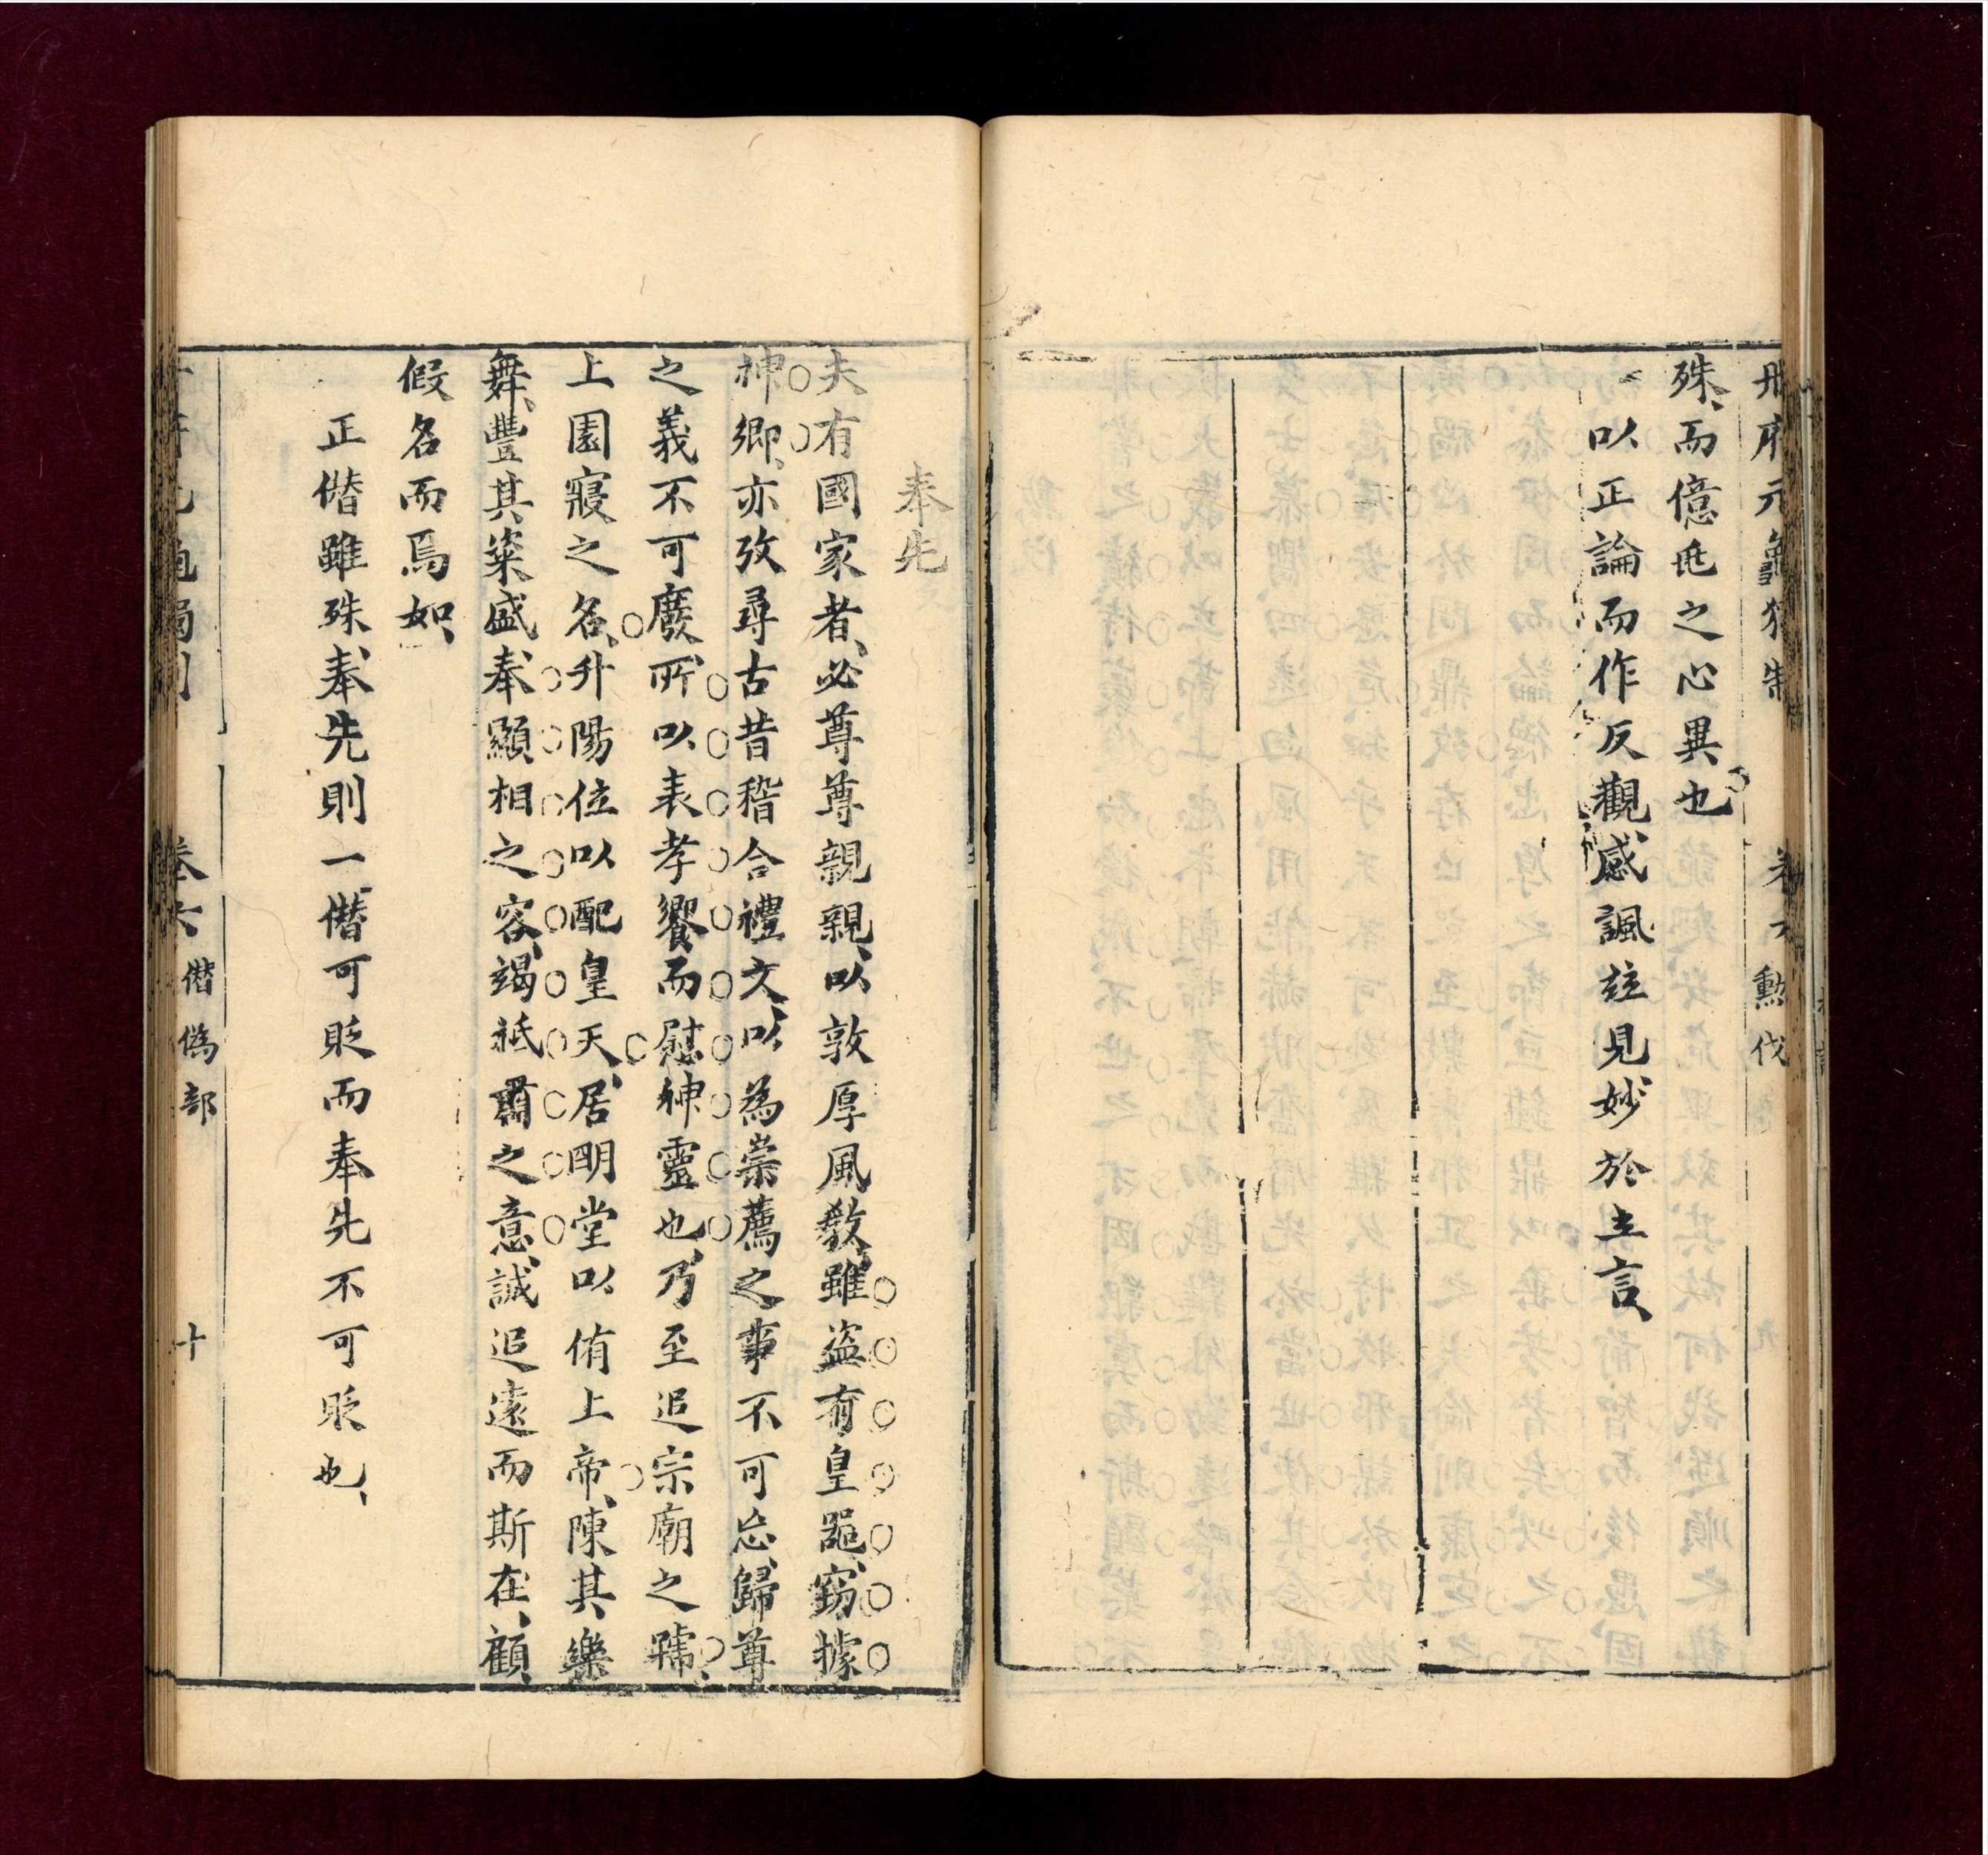 冊府元龜獨制 卷六 勲伐
殊、而億兆之心異也
以正論而作反觀、感諷竝見、妙於立言、
奉先
夫有國家者、必尊尊親親、以敦厚風教、雖盗有皇器、竊據
神鄉、亦攷尋古昔稽合禮文、以為崇薦之事不可忘、歸尊
之義不可廢、所以表孝饗、而慰神靈也、乃至追宗廟之號、
上園寢之名、升陽位以配皇天、居明堂以侑上帝、陳其樂
舞、豐其粢盛、奉顯相之容、竭祗肅之意、誠追遠而斯在、顧、
假名而焉如、
正僭雖殊、奉先則一、僭可貶而奉先不可貶也、
卷六 僭偽部 十